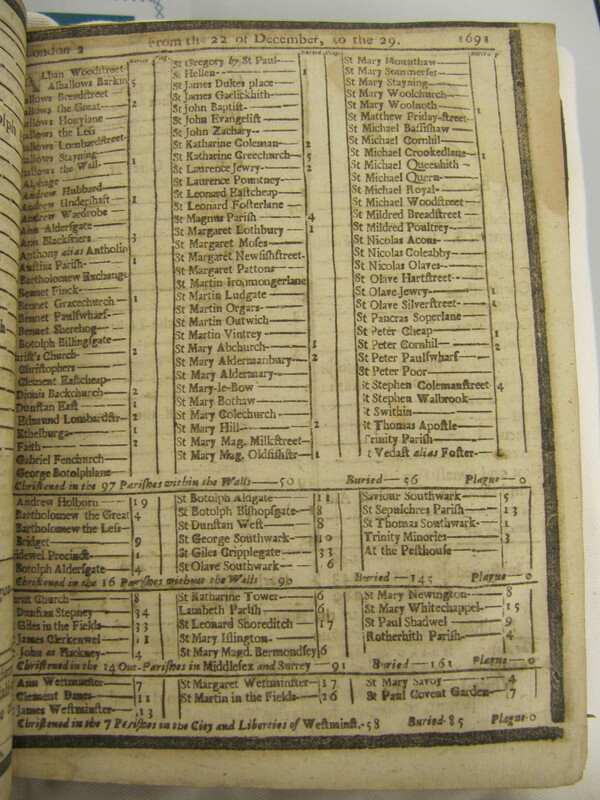 London 2 From the 22 of December, to the 29. 1691
Buried Plag.
Buried Plag.
Buried P
Lban Woodſtreet-
Alhallows Barkin 5
allows Breadſtreet
allows the Great- 2
allows Honylane
allows the Leſs
allows Lombardſtreet-
allows Stayning- 1
allows the Wall-
Alphage
Andrew Hubbard
Andrew Underſhaft- 1
Andrew Wardrobe
Ann Alderſgate
Ann Blackfriers 3
Anthony alias Antholin
Auſtins Pariſh 1
Bartholomew Exchange
Bennet Finck
Bennet Gracechurch 1
Bennet Paulſwharf
Bennet Sherehog
Botolph Billingſgate
riſt's Church 2
Chriſtophers
Clement Eaſtcheap
Dionis Backchurch 2
Dunſtan Eaſt 1
Edmund Lombardſtr- 2
Ethelburga 1
Faith 2
Gabriel Fenchurch
George Botolphlane
St Gregory by St Paul-
St Hellen 1
St James Dukes place
St James Garlickhith
St John Baptiſt
St John Evangeliſt
St John Zachary
St Katharine Coleman- 2
St Katharine Creechurch- 5
St Laurence Jewry- 2
St Laurence Pountney-
St Leonard Eaſtcheap
St Leonard Foſterlane
St Magnus Pariſh 4
St Margaret Lothbury 1
St Margaret Moſes
St Margaret Newfiſhſtreet-
St Margaret Pattons
St Martin Ironmongerlane
St Martin Ludgate
St Martin Orgars
St Martin Outwich
St Martin Vintrey
St Mary Abchurch 1
St Mary Aldermanbury- 2
St Mary Aldermary
St Mary-le-Bow
St Mary Bothaw
St Mary Colechurch
St Mary Hill 2
St Mary Mag. Milkſtreet-
St Mary Mag. Oldfiſhſtr 1
St Mary Mounthaw
St Mary Sommerſet
St Mary Stayning
St Mary Woolchurch
St Mary Woolnoth 1
St Matthew Friday-ſtreet-
St Michael Baſſiſhaw
St Michael Cornhil
St Michael Crookedlane- 1
St Michael Queenhith
St Michael Quern
St Michael Royal
St Michael Woodſtreet
St Mildred Breadſtreet
St Mildred Poultrey
St Nicolas Acons
St Nicolas Coleabby
St Nicolas Olaves
St Olave Hartſtreet
St Olave Jewry 1
St Olave Silverſtreet 1
St Pancras Soperlane
St Peter Cheap 1
St Peter Cornhil 2
St Peter Paulſwharf
St Peter Poor
St Stephen Colemanſtreet 4
St Stephen Walbrook
t Swithin
t Thomas Apoſtle
Trinity Pariſh
t Vedaſt alias Foſter- 1
Chriſtened in the 97 Pariſhes within the Walls 50 Buried 56 Plague 0
Andrew Holborn 19
Bartholomew the Great 4
Bartholomew the Leſs
Bridget 9
idewel Precinct 1
Botolph Alderſgate 4
St Botolph Aldgate 11
St Botolph Biſhopſgate 8
St Dunſtan Weſt 8
St George Southwark 10
St Giles Cripplegate 33
St Olave Southwark 6
Saviour Southwark 5
St Sepulchres Pariſh 13
St Thomas Southwark- 1
Trinity Minories 3
At the Peſthouſe
Chriſtened in the 16 Pariſhes without the Walls 90 Buried 145 Plague 0
Church 8
Dunſtan Stepney 34
Giles in the Fields 33
James Clerkenwel 11
John at Hackney 4
St Katharine Tower 6
Lambeth Pariſh 6
St Leonard Shoreditch 17
St Mary Iſlington
St Mary Magd. Bermondſey 6
St Mary Newington 8
St Mary Whitechappel 15
St Paul Shadwel 9
Rotherhith Pariſh 4
Chriſtened in the 14 Out-Pariſhes in Middleſex and Surrey 91 Buried 161 Plague 0
Ann Weſtminſter 7
Clement Danes 11
James Weſtminſter 13
St Margaret Weſtminſter 17
St Martin in the Fields 26
St Mary Savoy 4
St Paul Covent Garden 7
Chriſtened in the 7 Pariſhes in the City and Liberties of Weſtminſt. 58 Buried 85 Plague 0